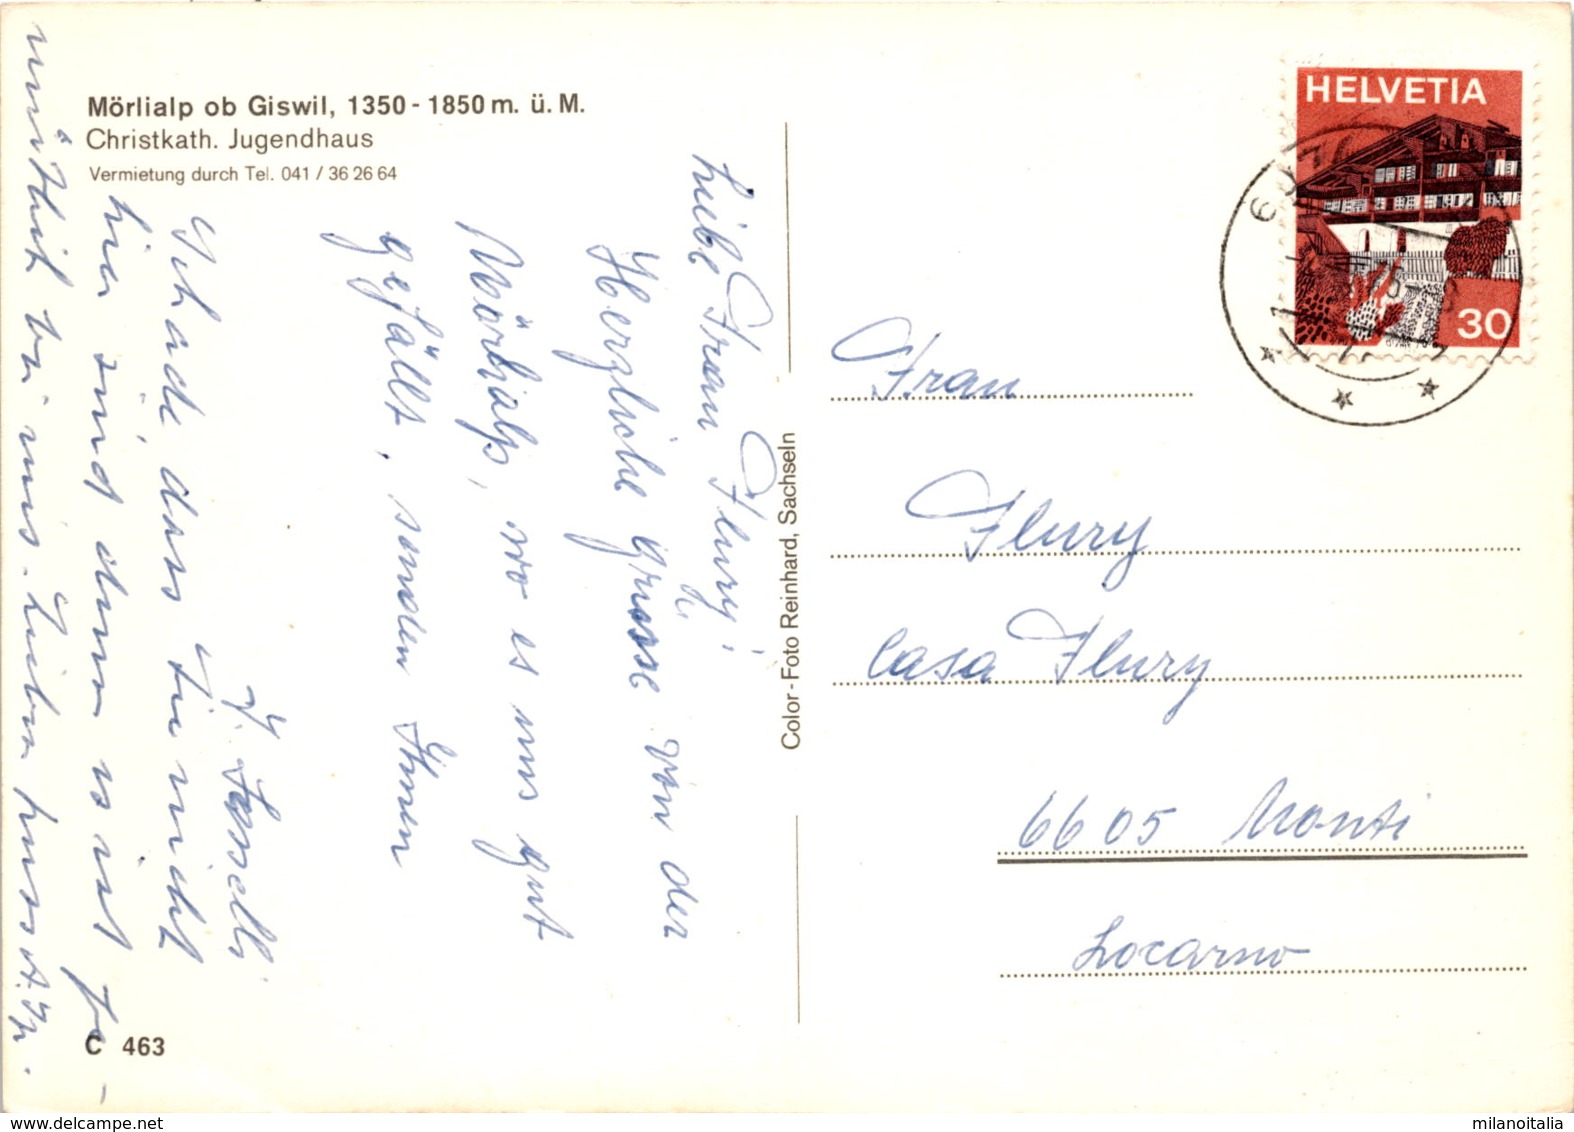 Mörlialp ob Giswil, 1350 - 1850 m. ü. M.
Christkath. Jugendhaus
Vermietung durch Tel. 041 / 36 26 64
Liebe Frau Flury!
Herzliche Grüsse von der
Mörlialp, wo es uns gut
gefällt, senden Ihnen
Schade, dass Sie nicht
hier sind denn es ist ge-
mütlich bei uns. Lieben
Color - Foto Reinhard, Sachseln
HELVETIA
30
Frau
Flury
Casa Flury
6605 Monti
Locarno
C 463
www.delcampe.net
milanoitalia